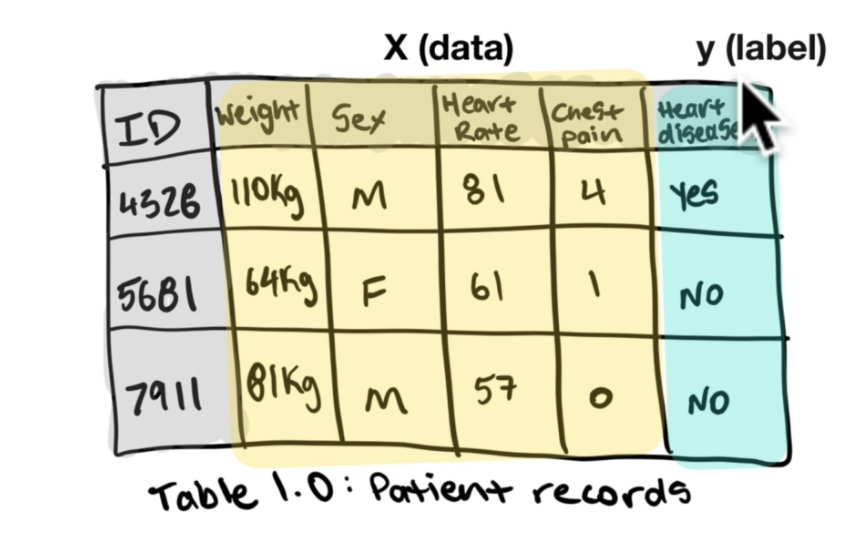 X (data) y (label)
ID Weight Sex Heart Rate Chest pain Heart disease
4326 110Kg M 81 4 Yes
5681 64Kg F 61 1 NO
7911 81Kg M 57 0 NO
Table 1.0: Patient records